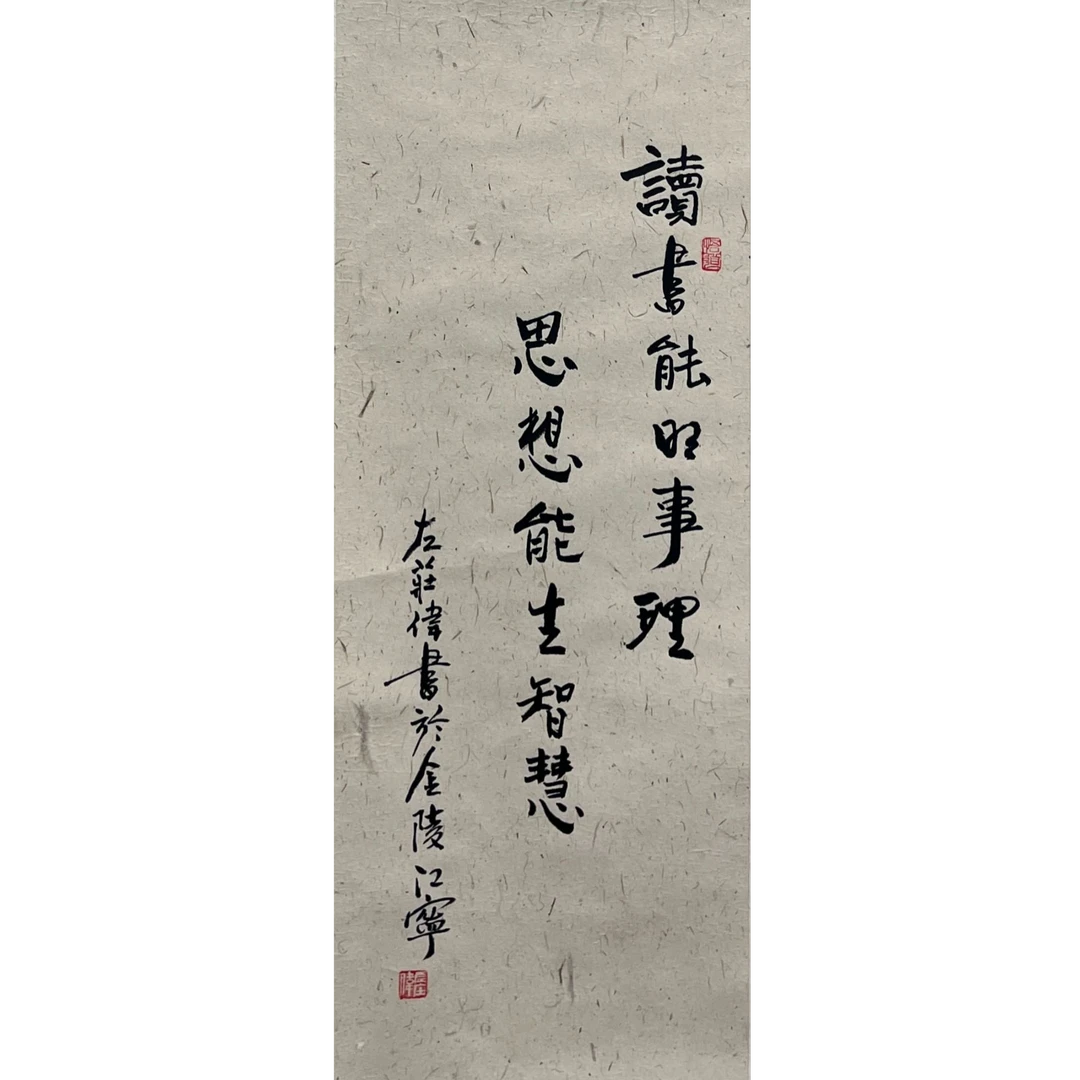 讀書能明事理
思想能生智慧
左莊偉書於金陵江寧